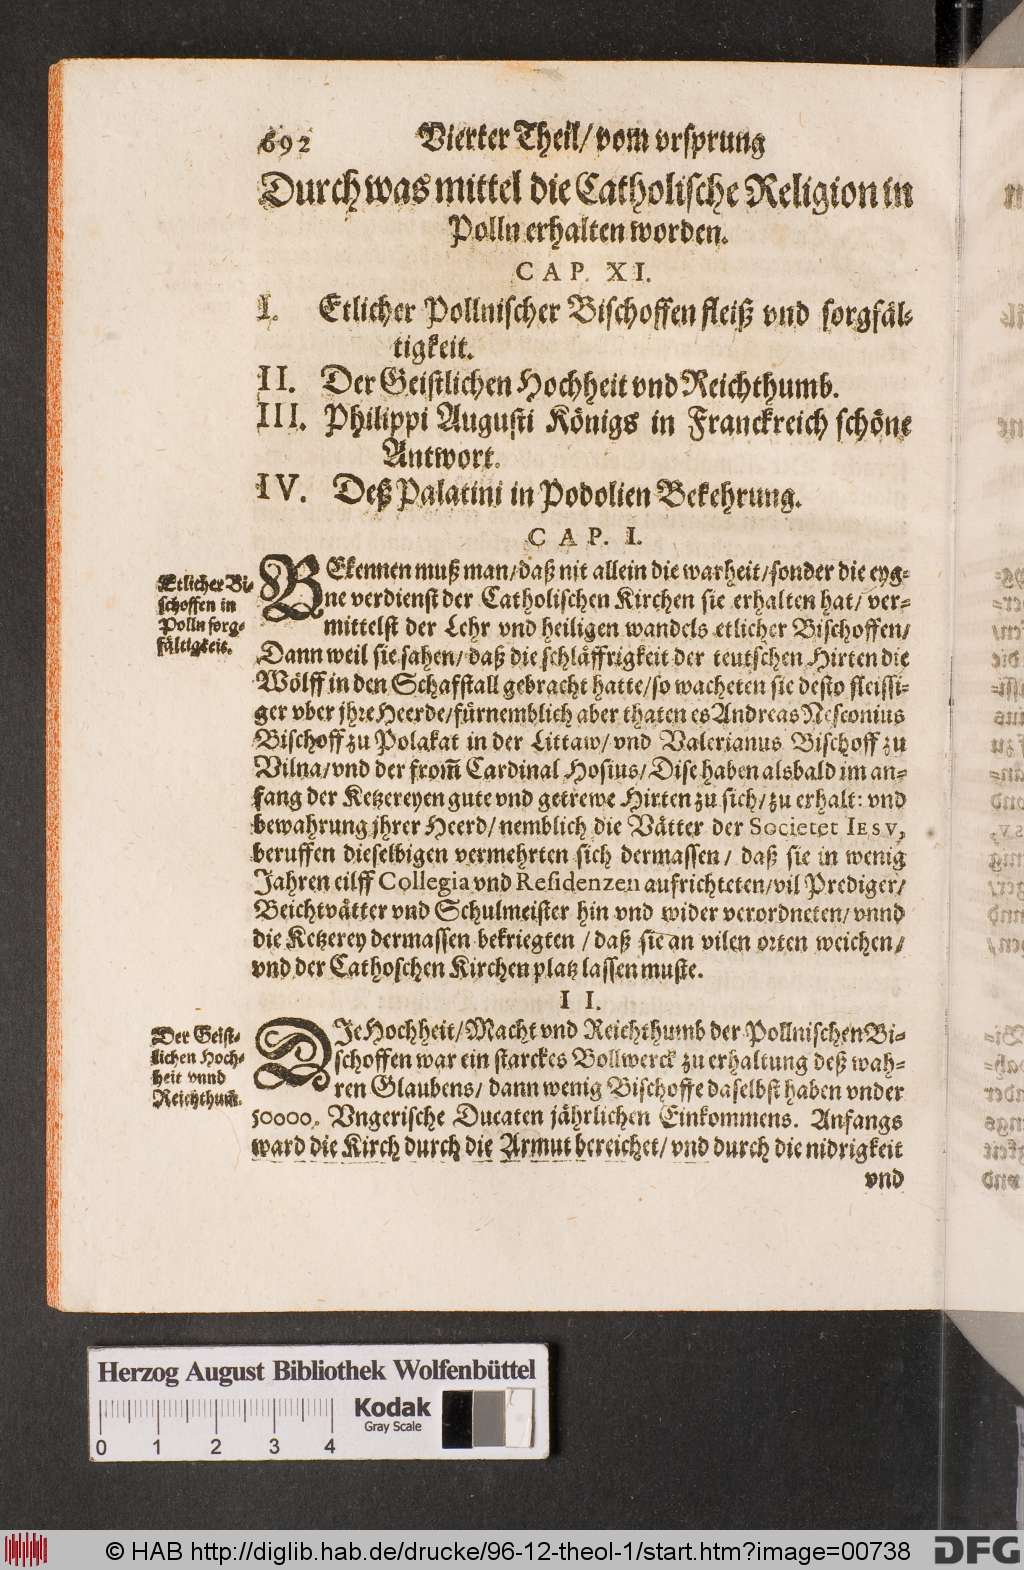 692 Vierter Theil/ vom vrsprung
Durch was mittel die Catholische Religion in
Polln erhalten worden.
CAP. XI.
I. Etlicher Pollnischer Bischoffen fleiß vnd sorgfäl-
tigkeit.
II. Der Geistlichen Hochheit vnd Reichthumb.
III. Philippi Augusti Königs in Franckreich schöne
Antwort.
IV. Deß Palatini in Podolien Bekehrung.
CAP. I.
Etlicher Bi-
schoffen in
Polln sorg-
fältigkeit.
BEkennen muß man/ daß nit allein die warheit/ sonder die eyg-
ne verdienst der Catholischen Kirchen sie erhalten hat/ ver-
mittelst der Lehr vnd heiligen wandels etlicher Bischoffen/
Dann weil sie sahen/ daß die schläffrigkeit der teutschen Hirten die
Wölff in den Schafstall gebracht hatte/ so wacheten sie desto fleissi-
ger vber jhre Heerde/ fürnemblich aber thaten es Andreas Nesconius
Bischoff zu Polakat in der Littaw/ vnd Valerianus Bischoff zu
Vilna/ vnd der from̃ Cardinal Hosius/ Dise haben alsbald im an-
fang der Ketzereyen gute vnd getrewe Hirten zu sich/ zu erhalt: vnd
bewahrung jhrer Heerd/ nemblich die Vätter der Societet IESV,
beruffen dieselbigen vermehrten sich dermassen/ daß sie in wenig
Jahren eilff Collegia vnd Residenzen aufrichteten/ vil Prediger/
Beichtvätter vnd Schulmeister hin vnd wider verordneten/ vnnd
die Ketzerey dermassen bekriegten/ daß sie an vilen orten weichen/
vnd der Cathoschen Kirchen platz lassen muste.
II.
Der Geist-
lichen Hoch-
heit vnnd
Reichthum̃.
DJe Hochheit/ Macht vnd Reichthumb der Pollnischen Bi-
schoffen war ein starckes Bollwerck zu erhaltung deß wah-
ren Glaubens/ dann wenig Bischoffe daselbst haben vnder
50000. Vngerische Ducaten jährlichen Einkommens. Anfangs
ward die Kirch durch die Armut bereichet/ vnd durch die nidrigkeit
vnd
Herzog August Bibliothek Wolfenbüttel
Kodak
Gray Scale
0 1 2 3 4
© HAB http://diglib.hab.de/drucke/96-12-theol-1/start.htm?image=00738
DFG